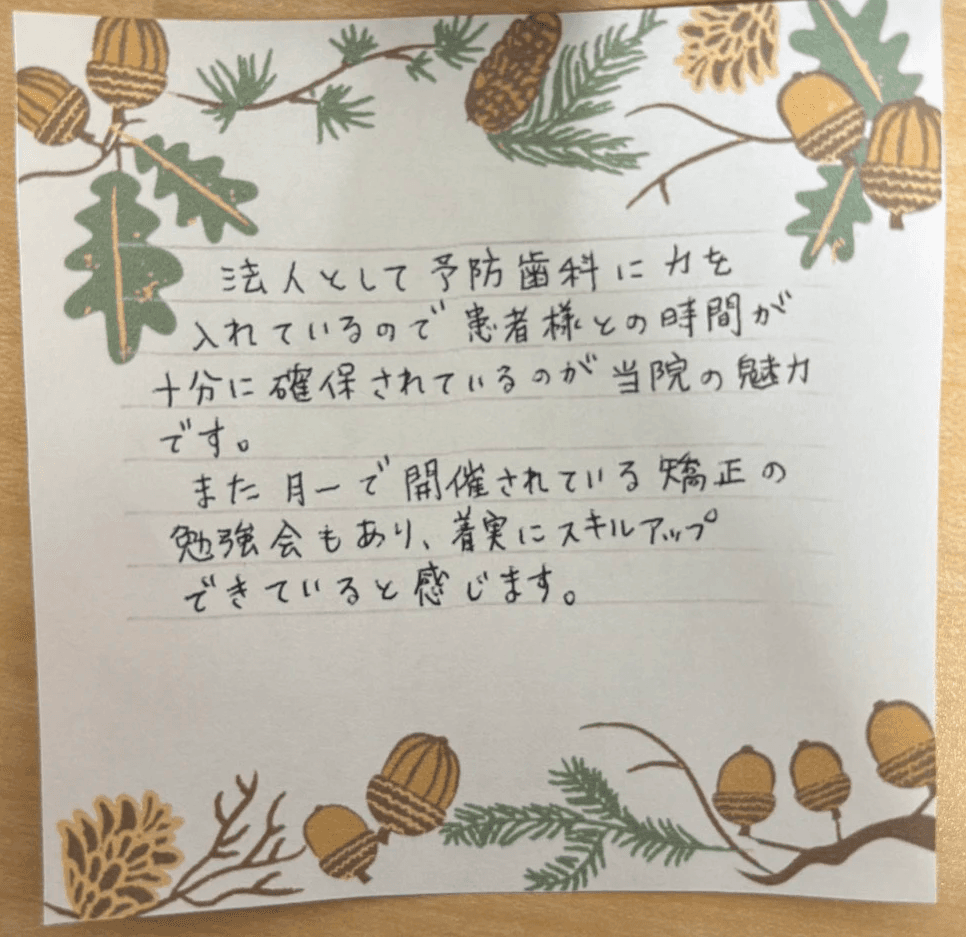 法人として予防歯科に力を
入れているので患者様との時間が
十分に確保されているのが当院の魅力
です。
また月一で開催されている矯正の
勉強会もあり、着実にスキルアップ
できていると感じます。